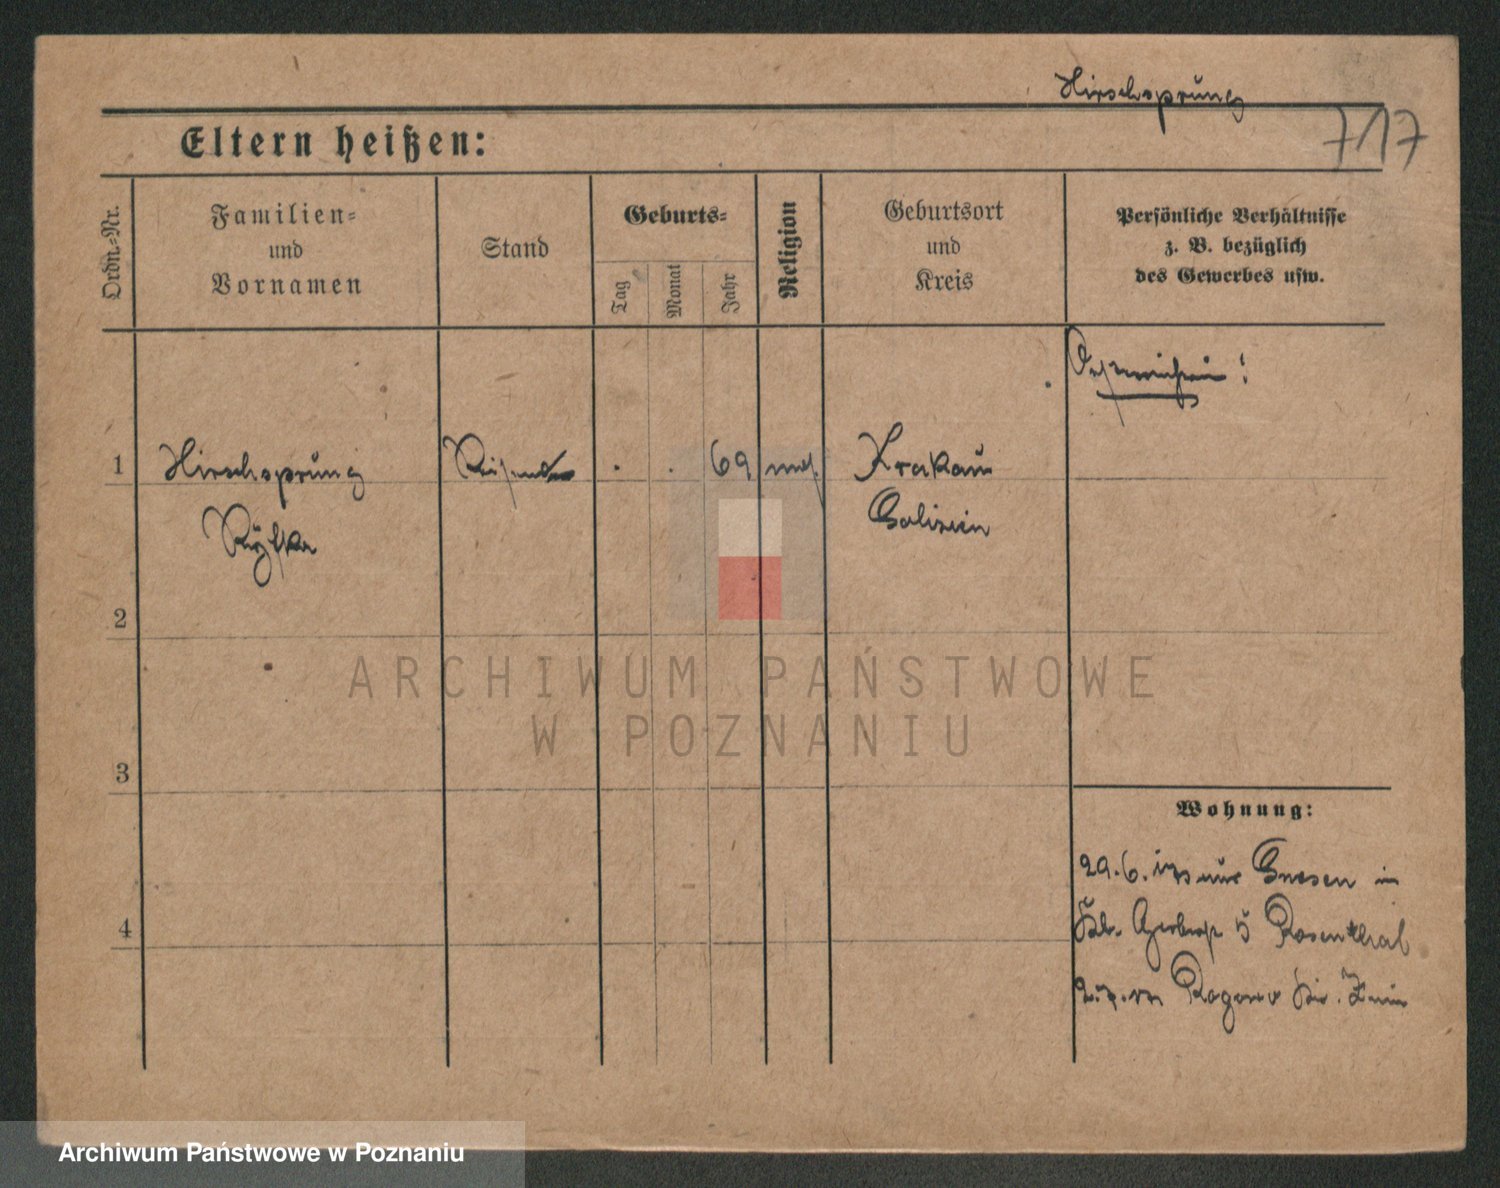 Hirschsprung
717
Eltern heißen:
Ordn.-Nr.
Familien-
und
Vornamen
Stand
Geburts-
Tag
Monat
Jahr
Religion
Geburtsort
und
Kreis
Persönliche Verhältnisse
z. B. bezüglich
des Gewerbes usw.
Oesterreicherin!
1
Hirschsprung
Reisende
. . 69
mos.
Krakau
Ryfka
Galizien
2
3
4
Wohnung:
29.6. aus Gnesen in
5 Rosenthal
2.7. Rogowo Kr. Znin
ARCHIWUM PAŃSTWOWE
W POZNANIU
Archiwum Państwowe w Poznaniu